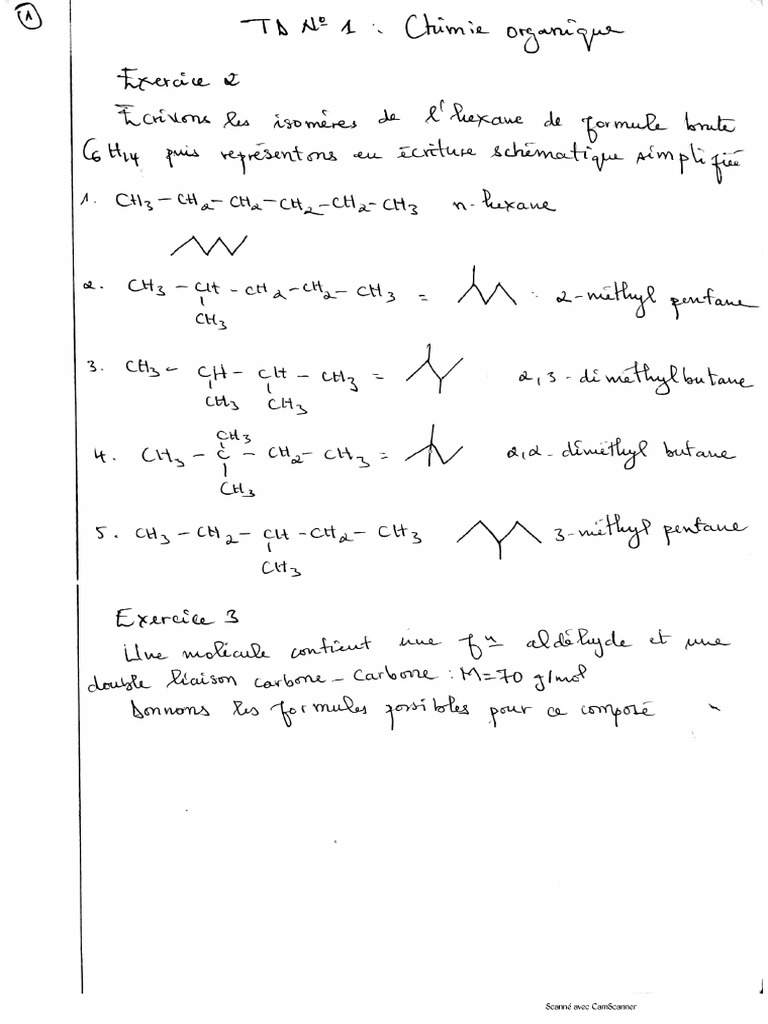 1
TD N° 1 : Chimie organique
Exercice 2
Ecrivons les isomères de l'hexane de formule brute
C6H14 puis représentons en écriture schématique simplifiée
1. CH3-CH2-CH2-CH2-CH2-CH3 n-hexane
2. CH3-CH-CH2-CH2-CH3 = : 2-méthyl pentane
CH3
3. CH3-CH-CH-CH3 = 2,3-diméthylbutane
CH3 CH3
CH3
4. CH3-C-CH2-CH3 = 2,2-diméthyl butane
CH3
5. CH3-CH2-CH-CH2-CH3 3-méthyl pentane
CH3
Exercice 3
Une molécule contient une fn aldéhyde et une
double liaison carbone-carbone : M=70 g/mol
Donnons les formules possibles pour ce composé
Scanné avec CamScanner